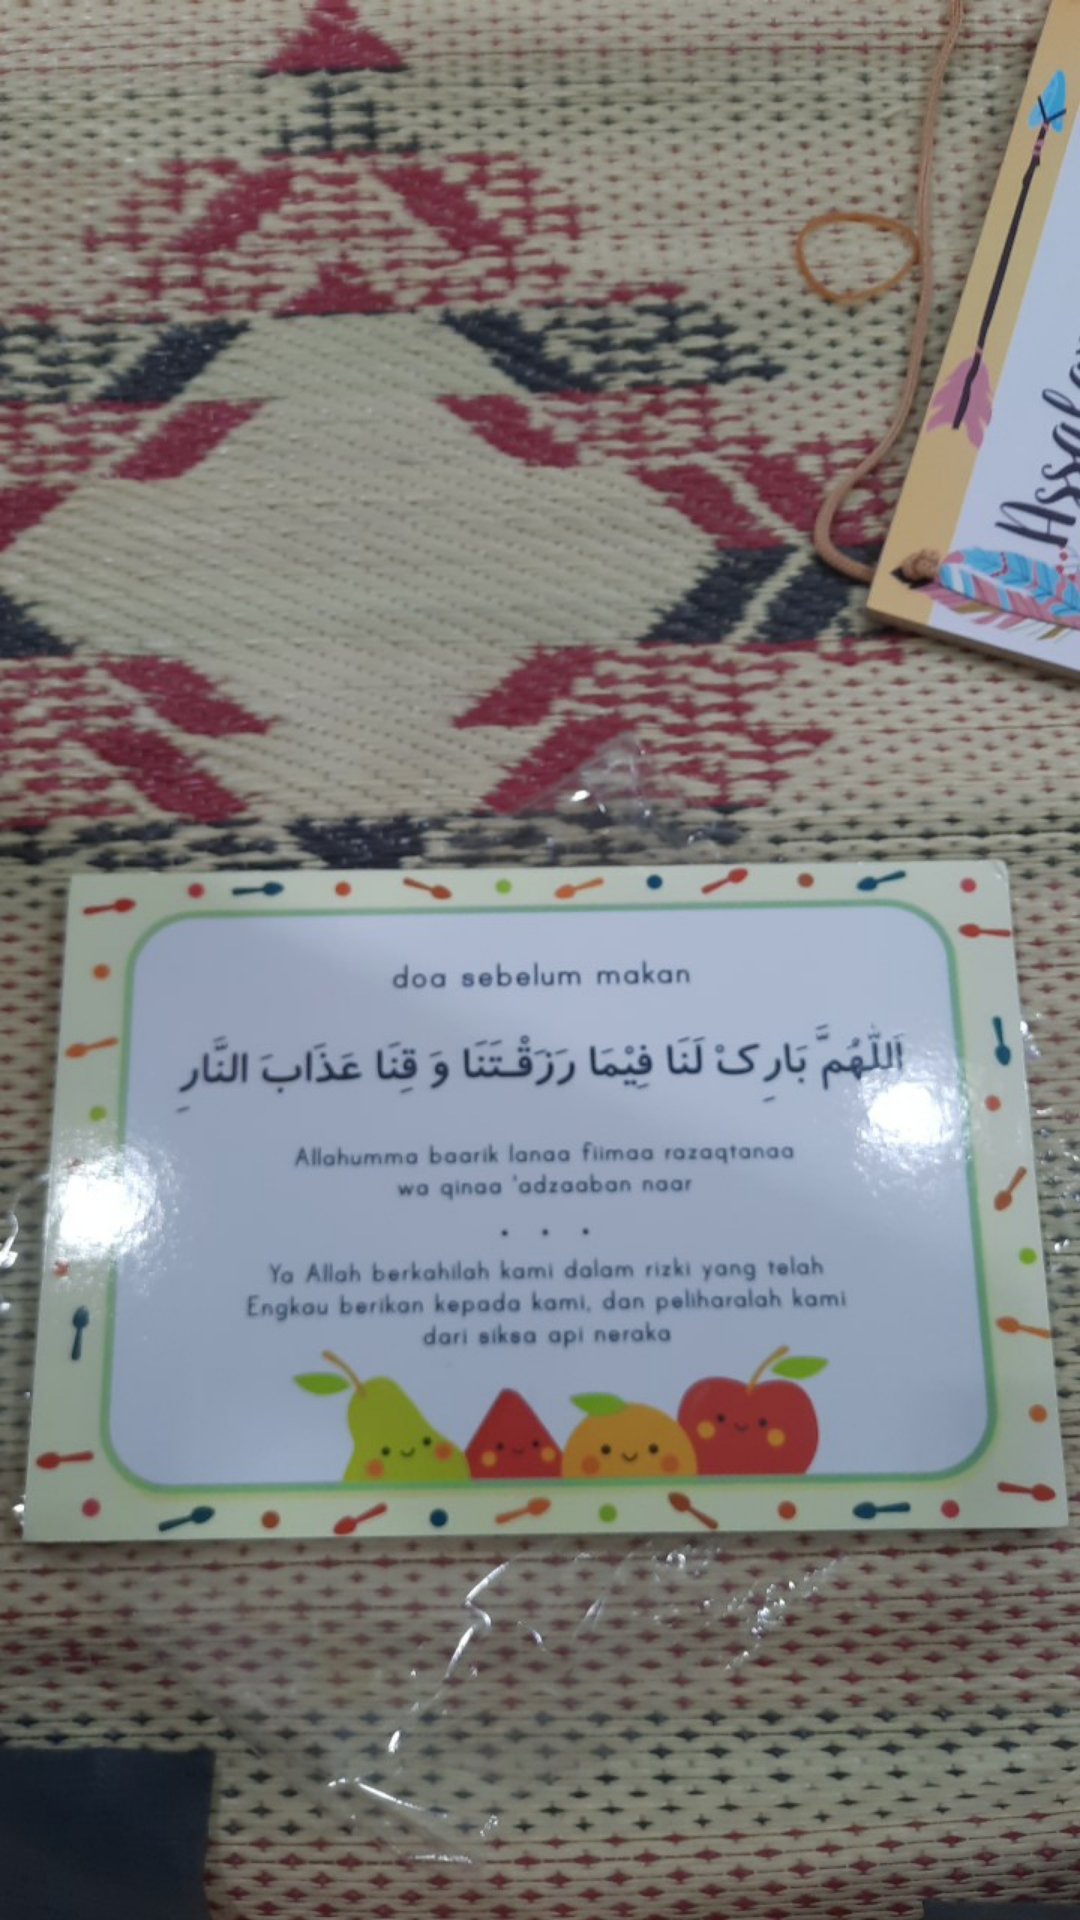 doa sebelum makan
اَللّٰهُمَّ بَارِكْ لَنَا فِيْمَا رَزَقْتَنَا وَ قِنَا عَذَابَ النَّارِ
Allahumma baarik lanaa fiimaa razaqtanaa
wa qinaa 'adzaaban naar
. . .
Ya Allah berkahilah kami dalam rizki yang telah
Engkau berikan kepada kami, dan peliharalah kami
dari siksa api neraka